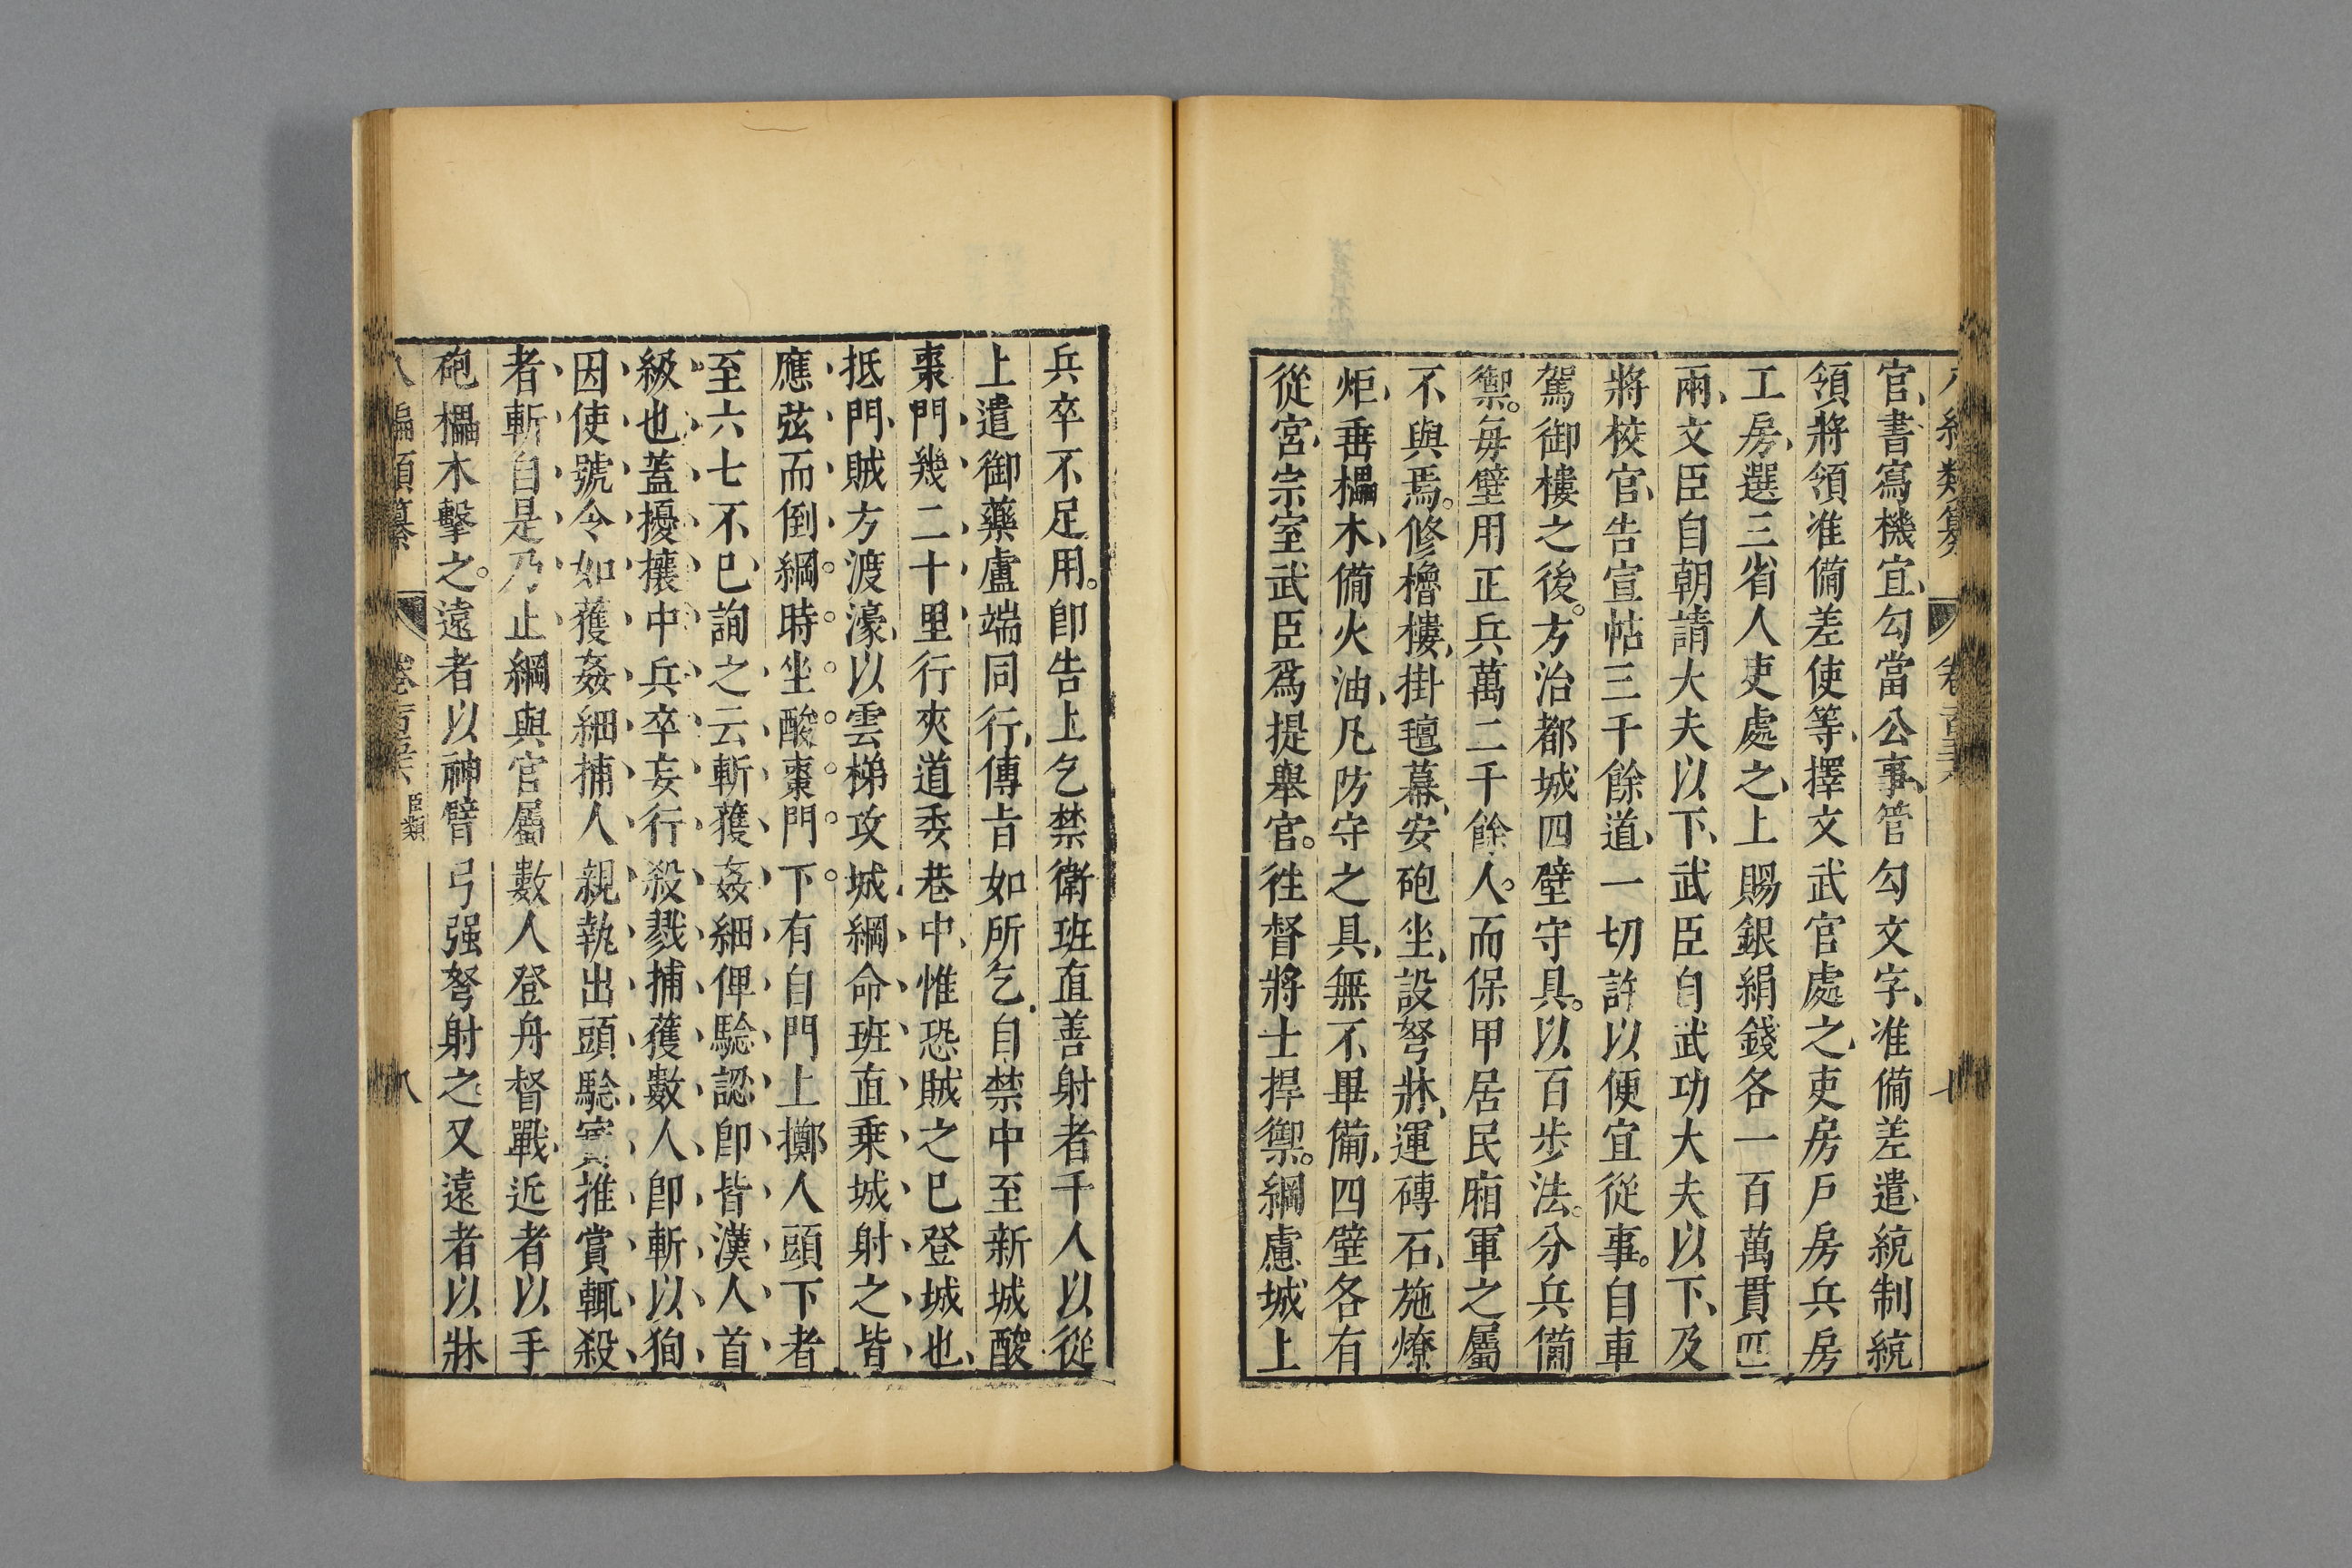 官、書寫機宜、勾當公事、管勾文字、准備差遣、統制統
領將領准備差使等、擇文武官處之、吏房戸房兵房
工房、選三省人吏處之、上賜銀絹錢各一百萬貫匹
兩、文臣自朝請大夫以下、武臣自武功大夫以下、及
將校官、告宣帖三千餘道、一切許以便宜從事。自車
駕御樓之後。方治都城四壁守具。以百步法。分兵備
禦。每壁用正兵萬二千餘人。而保甲居民廂軍之屬
不與焉。修櫓樓、掛氊幕、安砲坐、設弩牀、運磚石、施燎
炬、垂櫑木、備火油、凡防守之具、無不畢備、四壁各有
從宮、宗室武臣爲提舉官。徃督將士捍禦。綱慮城上
兵卒不足用。卽告上乞禁衛班直善射者千人以從
上遣御藥盧端同行、傳旨如所乞、自禁中至新城酸
棗門、幾二十里行夾道委巷中、惟恐賊之已登城也、
抵門、賊方渡濠、以雲梯攻城、綱命班直乘城射之皆
應弦而倒綱時坐酸棗門下。有自門上擲人頭下者
至六七不已詢之云斬獲姦細俾驗認卽皆漢人首
級也蓋擾攘中兵卒妄行殺戮捕獲數人卽斬以狥
因使號令如獲姦細捕人親執出頭驗實推賞輒殺
者斬自是乃止綱與官屬數人登舟督戰、近者以手
砲櫑木擊之。遠者以神臂弓强弩射之又遠者以牀
八編類纂 卷百 臣類 八